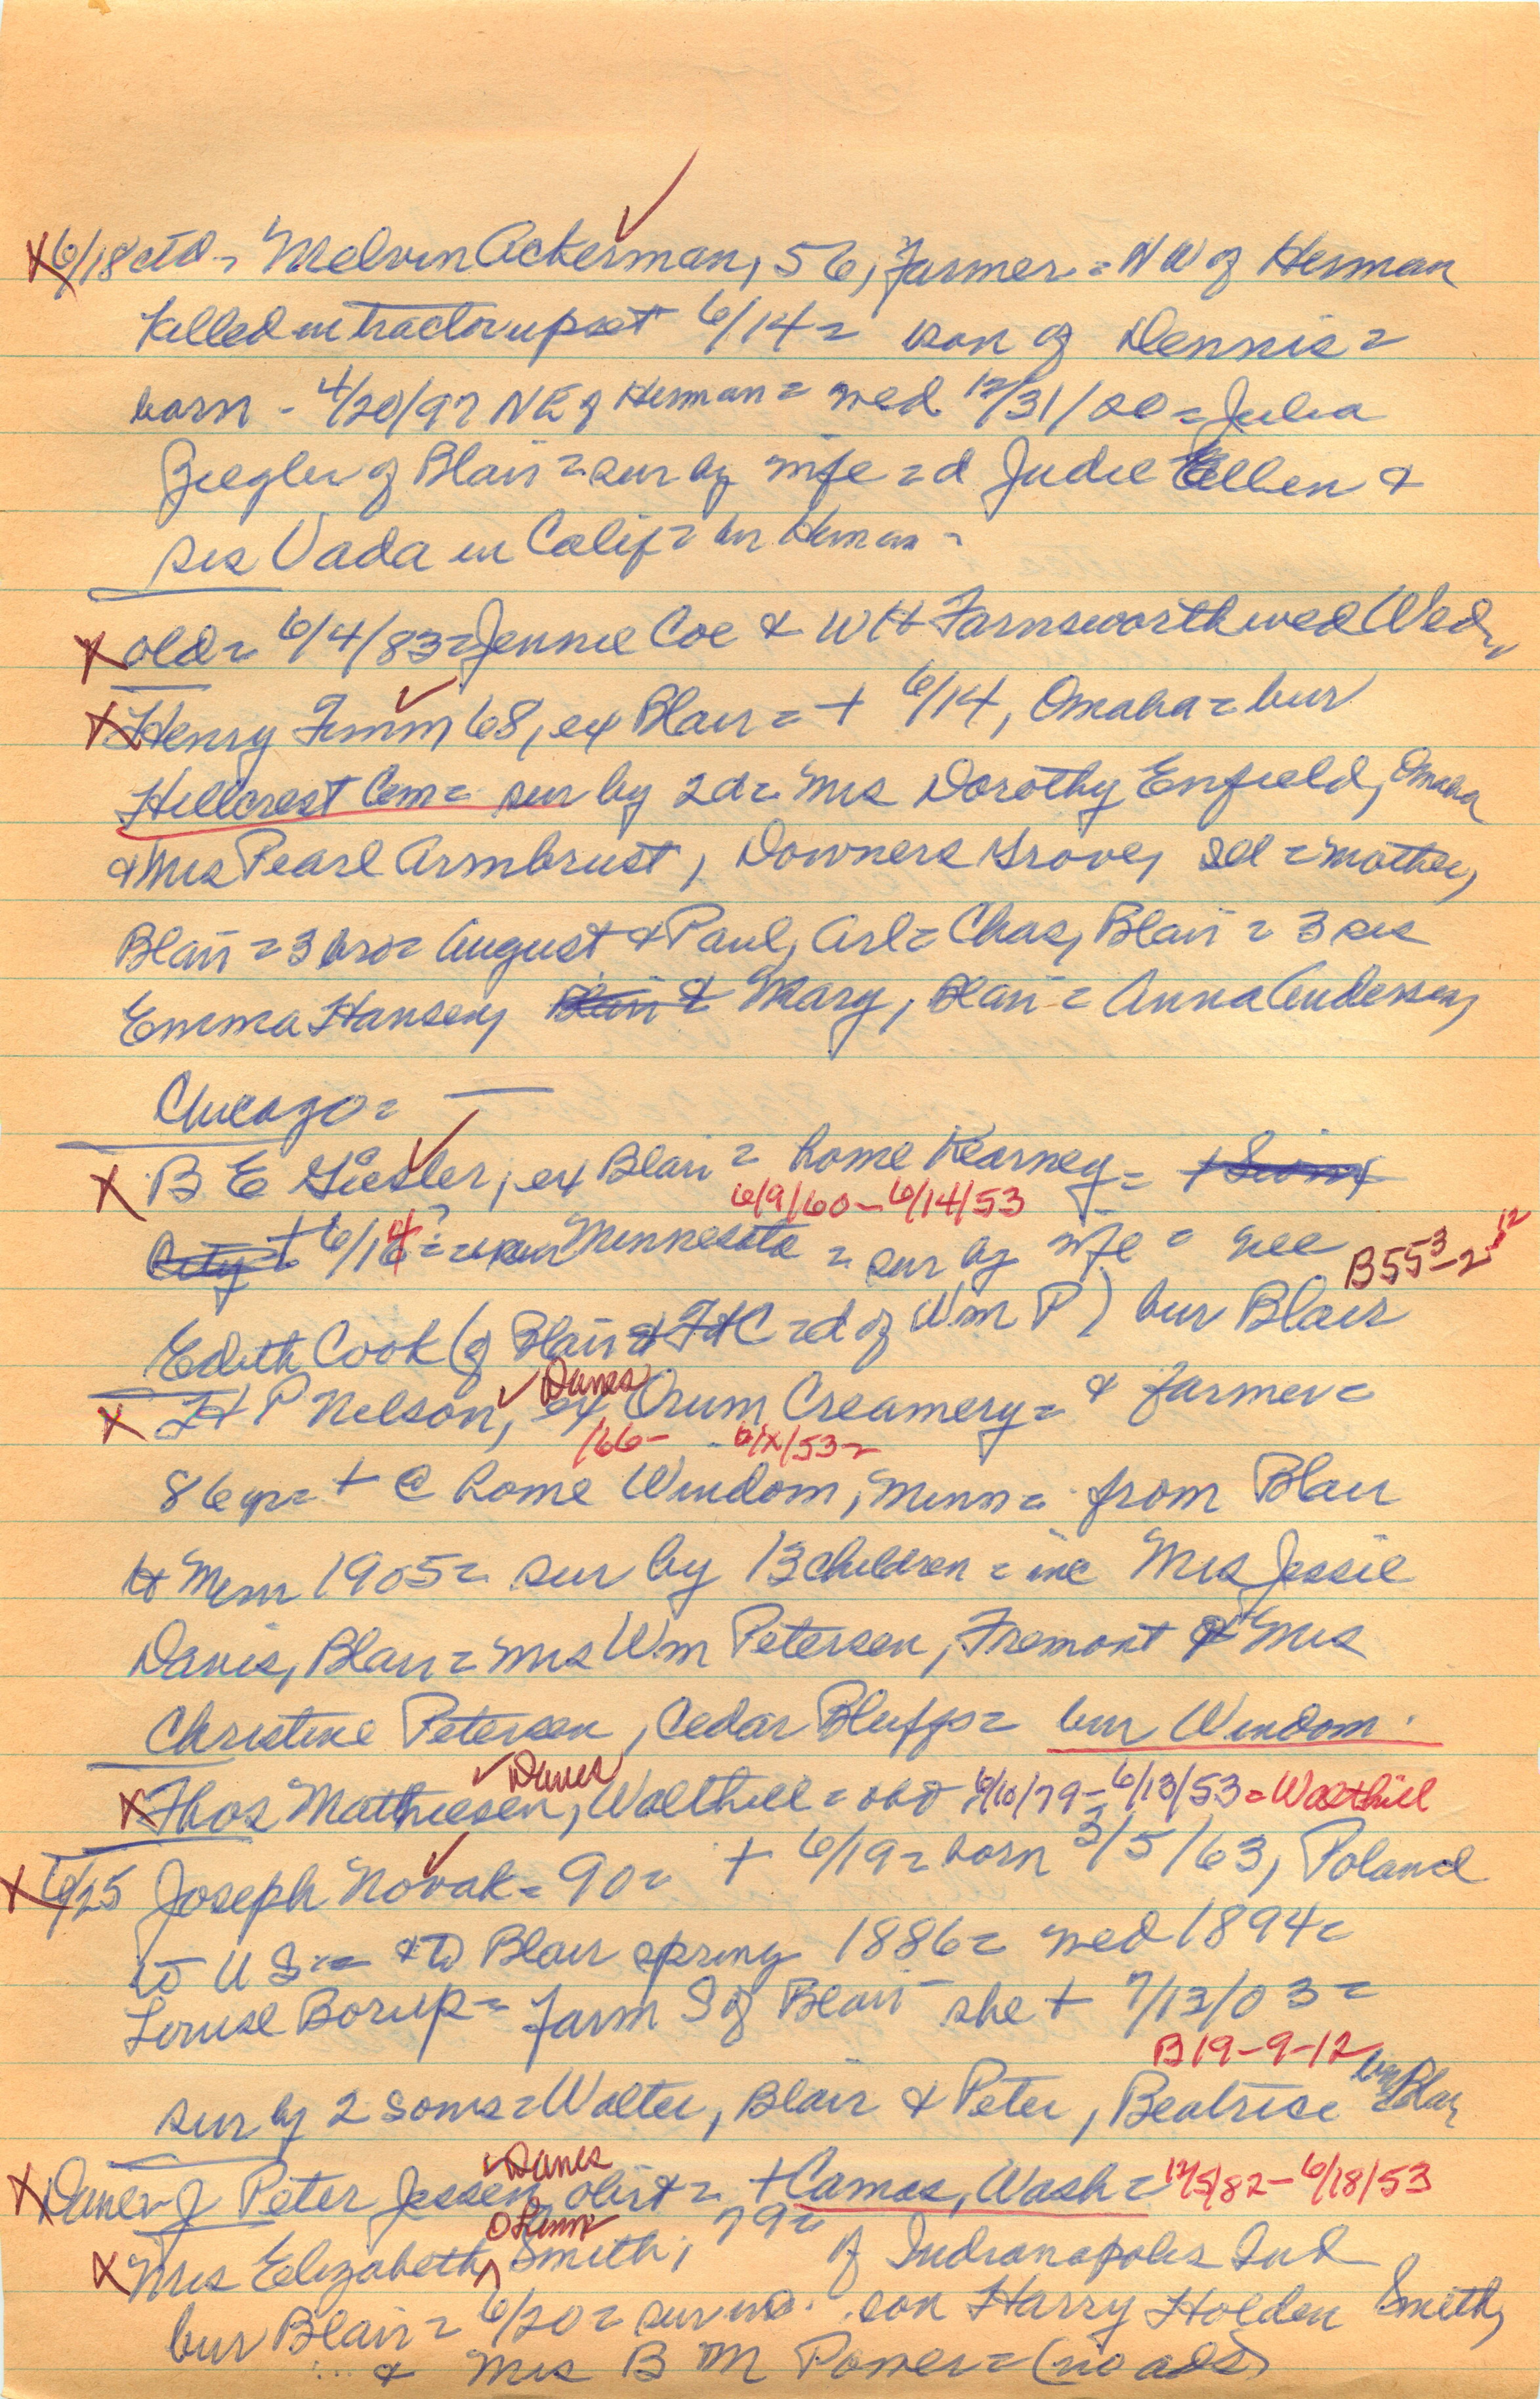 6/18 ctd = Melvin Ackerman, 56, Farmer = NW of Herman
killed in tractor upset 6/14 = son of Dennis =
born - 4/20/97 NE of Herman = wed 12/31/20 = Julia
Ziegler of Blair = sur by wife = d Judie Ellen &
sis Vada in Calif = bur Herman =
old = 6/4/83 = Jennie Coe & WH Farnsworth wed Wed
Henry Timm 68, ex Blair = + 6/14, Omaha = bur
Hillcrest Cem = sur by 2d = Mrs Dorothy Enfield, Omaha
& Mrs Pearl Armbrust, Downers Grove, Ill = mother,
Blair = 3 bro = August & Paul, Arl = Chas, Blair = 3 sis
Emma Hansen, Blair & Mary, Blair = Anna Andersen,
Chicago =
B E Giesler, ex Blair = home Kearney = + Sioux
6/9/60 - 6/14/53
City + 6/14 ? = Minnesota = sur by wife = nee
B 553-2 12
Edith Cook (of Blair & Ft C = d of Wm P) bur Blair
H P Nelson, Danes ex Orum Creamery = & farmer =
/66 - 6/x/53 =
86 yr = + @ home Windom, Minn = from Blair
to Minn 1905 = sur by 13 children = inc Mrs Jessie
Davis, Blair = Mrs Wm Petersen, Fremont & Mrs
Christine Petersen, Cedar Bluffs = bur Windom
Danes
Thos Mathiesen, Walthill = obit 6/10/79 - 6/13/53 = Walthill
6/25 Joseph Novak = 90 = + 6/19 = born 3/5/63, Poland
to U S = & to Blair spring 1886 = wed 1894 =
Louise Borup = farm S of Blair she + 7/13/03 =
B 19-9-12
sur by 2 sons = Walter, Blair & Peter, Beatrice bur Blair
Danes
Peter Jessen obit = + Camas, Wash = 12/5/82 - 6/18/53
Mrs Elizabeth Smith, 79 = of Indianapolis Ind
bur Blair = 6/20 = sur son Harry Holden Smith,
& Mrs B M Power = (no ads)